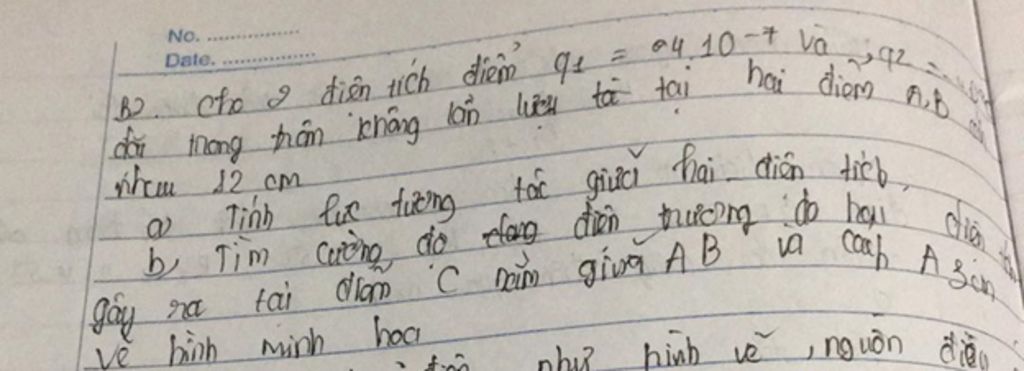 No. ..............
Date. ..............
B2. Cho 2 điện tích điểm q1 = -4.10-7 và q2 =
đặt trong chân không lần lượt tại hai điểm A,B
nhau 12 cm
a) Tính lực tương tác giữa hai điện tích
b, Tìm cường độ điện trường do hai điện
gây ra tại điểm C nằm giữa AB và cách A 3cm
vẽ hình minh hoạ
như hình vẽ, nguồn điện